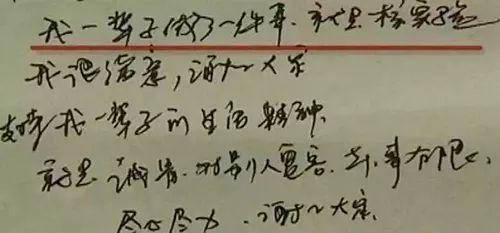 我一辈子做了一件事.就是核实验
我很满意,谢谢大家
支撑我一辈子的生活精神.
就是诚实.对别人宽容.事有恒心,
尽心尽力.谢谢大家.